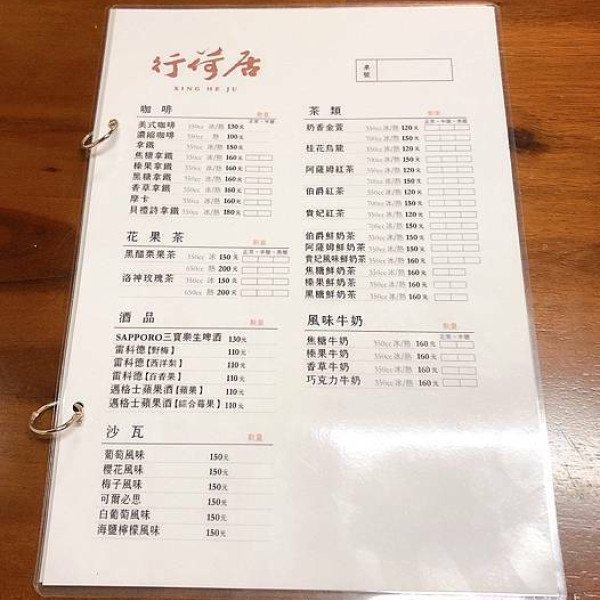 行荷居
XING HE JU
桌號
咖啡 數量
正常・半糖
美式咖啡 350cc 冰/熱 130元
濃縮咖啡 熱 100元
拿鐵 350cc 冰/熱 150元
焦糖拿鐵 350cc 冰/熱 160元
榛果拿鐵 350cc 冰/熱 160元
黑糖拿鐵 350cc 冰/熱 160元
香草拿鐵 350cc 冰/熱 160元
摩卡 350cc 冰/熱 160元
貝禮詩拿鐵 350cc 冰/熱 180元
花果茶 數量
正常・半糖・無糖
黑醋栗果茶 350cc 冰 150元
650cc 熱 200元
洛神玫瑰茶 350cc 冰 150元
650cc 熱 200元
酒品 數量
SAPPORO三寶樂生啤酒 130元
雷科德【野梅】 110元
雷科德【西洋梨】 110元
雷科德【百香果】 110元
邁格士蘋果酒【蘋果】 110元
邁格士蘋果酒【綜合莓果】 110元
沙瓦 數量
葡萄風味 150元
櫻花風味 150元
梅子風味 150元
可爾必思 150元
白葡萄風味 150元
海鹽檸檬風味 150元
茶類 數量
正常・半糖・無糖
奶香金萱 350cc 冰/熱 120元
700cc 冰/熱 150元
桂花烏龍 350cc 冰/熱 120元
700cc 冰/熱 150元
阿薩姆紅茶 350cc 冰/熱 120元
700cc 冰/熱 150元
伯爵紅茶 350cc 冰/熱 120元
700cc 冰/熱 150元
貴妃紅茶 350cc 冰/熱 120元
700cc 冰/熱 150元
伯爵鮮奶茶 350cc 冰/熱 150元
阿薩姆鮮奶茶 350cc 冰/熱 150元
貴妃風味鮮奶茶 350cc 冰/熱 150元
焦糖鮮奶茶 350cc 冰/熱 160元
榛果鮮奶茶 350cc 冰/熱 160元
黑糖鮮奶茶 350cc 冰/熱 160元
風味牛奶 數量
正常・半糖
焦糖牛奶 350cc 冰/熱 160元
榛果牛奶 350cc 冰/熱 160元
香草牛奶 350cc 冰/熱 160元
巧克力牛奶 350cc 冰/熱 160元